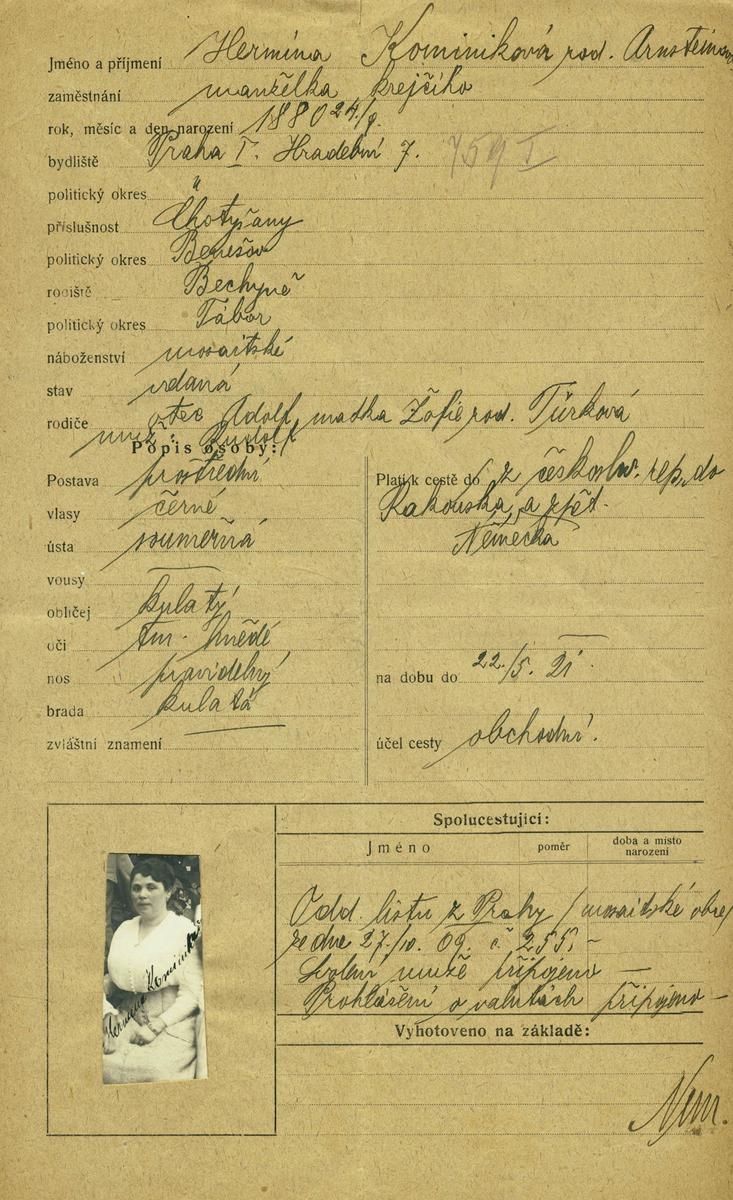 Jméno a příjmení Hermína Kominiková rod. Arnsteinová
zaměstnání manželka krejčího
rok, měsíc a den narození 1880 24/9.
bydliště Praha I. Hradební 7. 759 I
politický okres "
příslušnost Chotýšany
politický okres Benešov
rodiště Bechyně
politický okres Tábor
náboženství mosaitské
stav vdaná
rodiče otec Adolf, matka Žofie rod. Türková
muž: Rudolf
Popis osoby:
Postava prostřední
vlasy černé
ústa souměrná
vousy —
obličej kulatý
oči tm. hnědé
nos pravidelný
brada kulatá
zvláštní znamení —
Platí k cestě do z českoslov. rep. do
Rakouska, a zpět.
Německa
na dobu do 22./5. 21.
účel cesty obchodní.
Spolucestující:
Jméno poměr doba a místo narození
Odd. listu z Prahy / mosaitské obce /
ze dne 27./10. 09. č. 255. –
Svolení muže připojeno —
Prohlášení o valutách připojeno –
Vyhotoveno na základě:
Hermína Kominiková